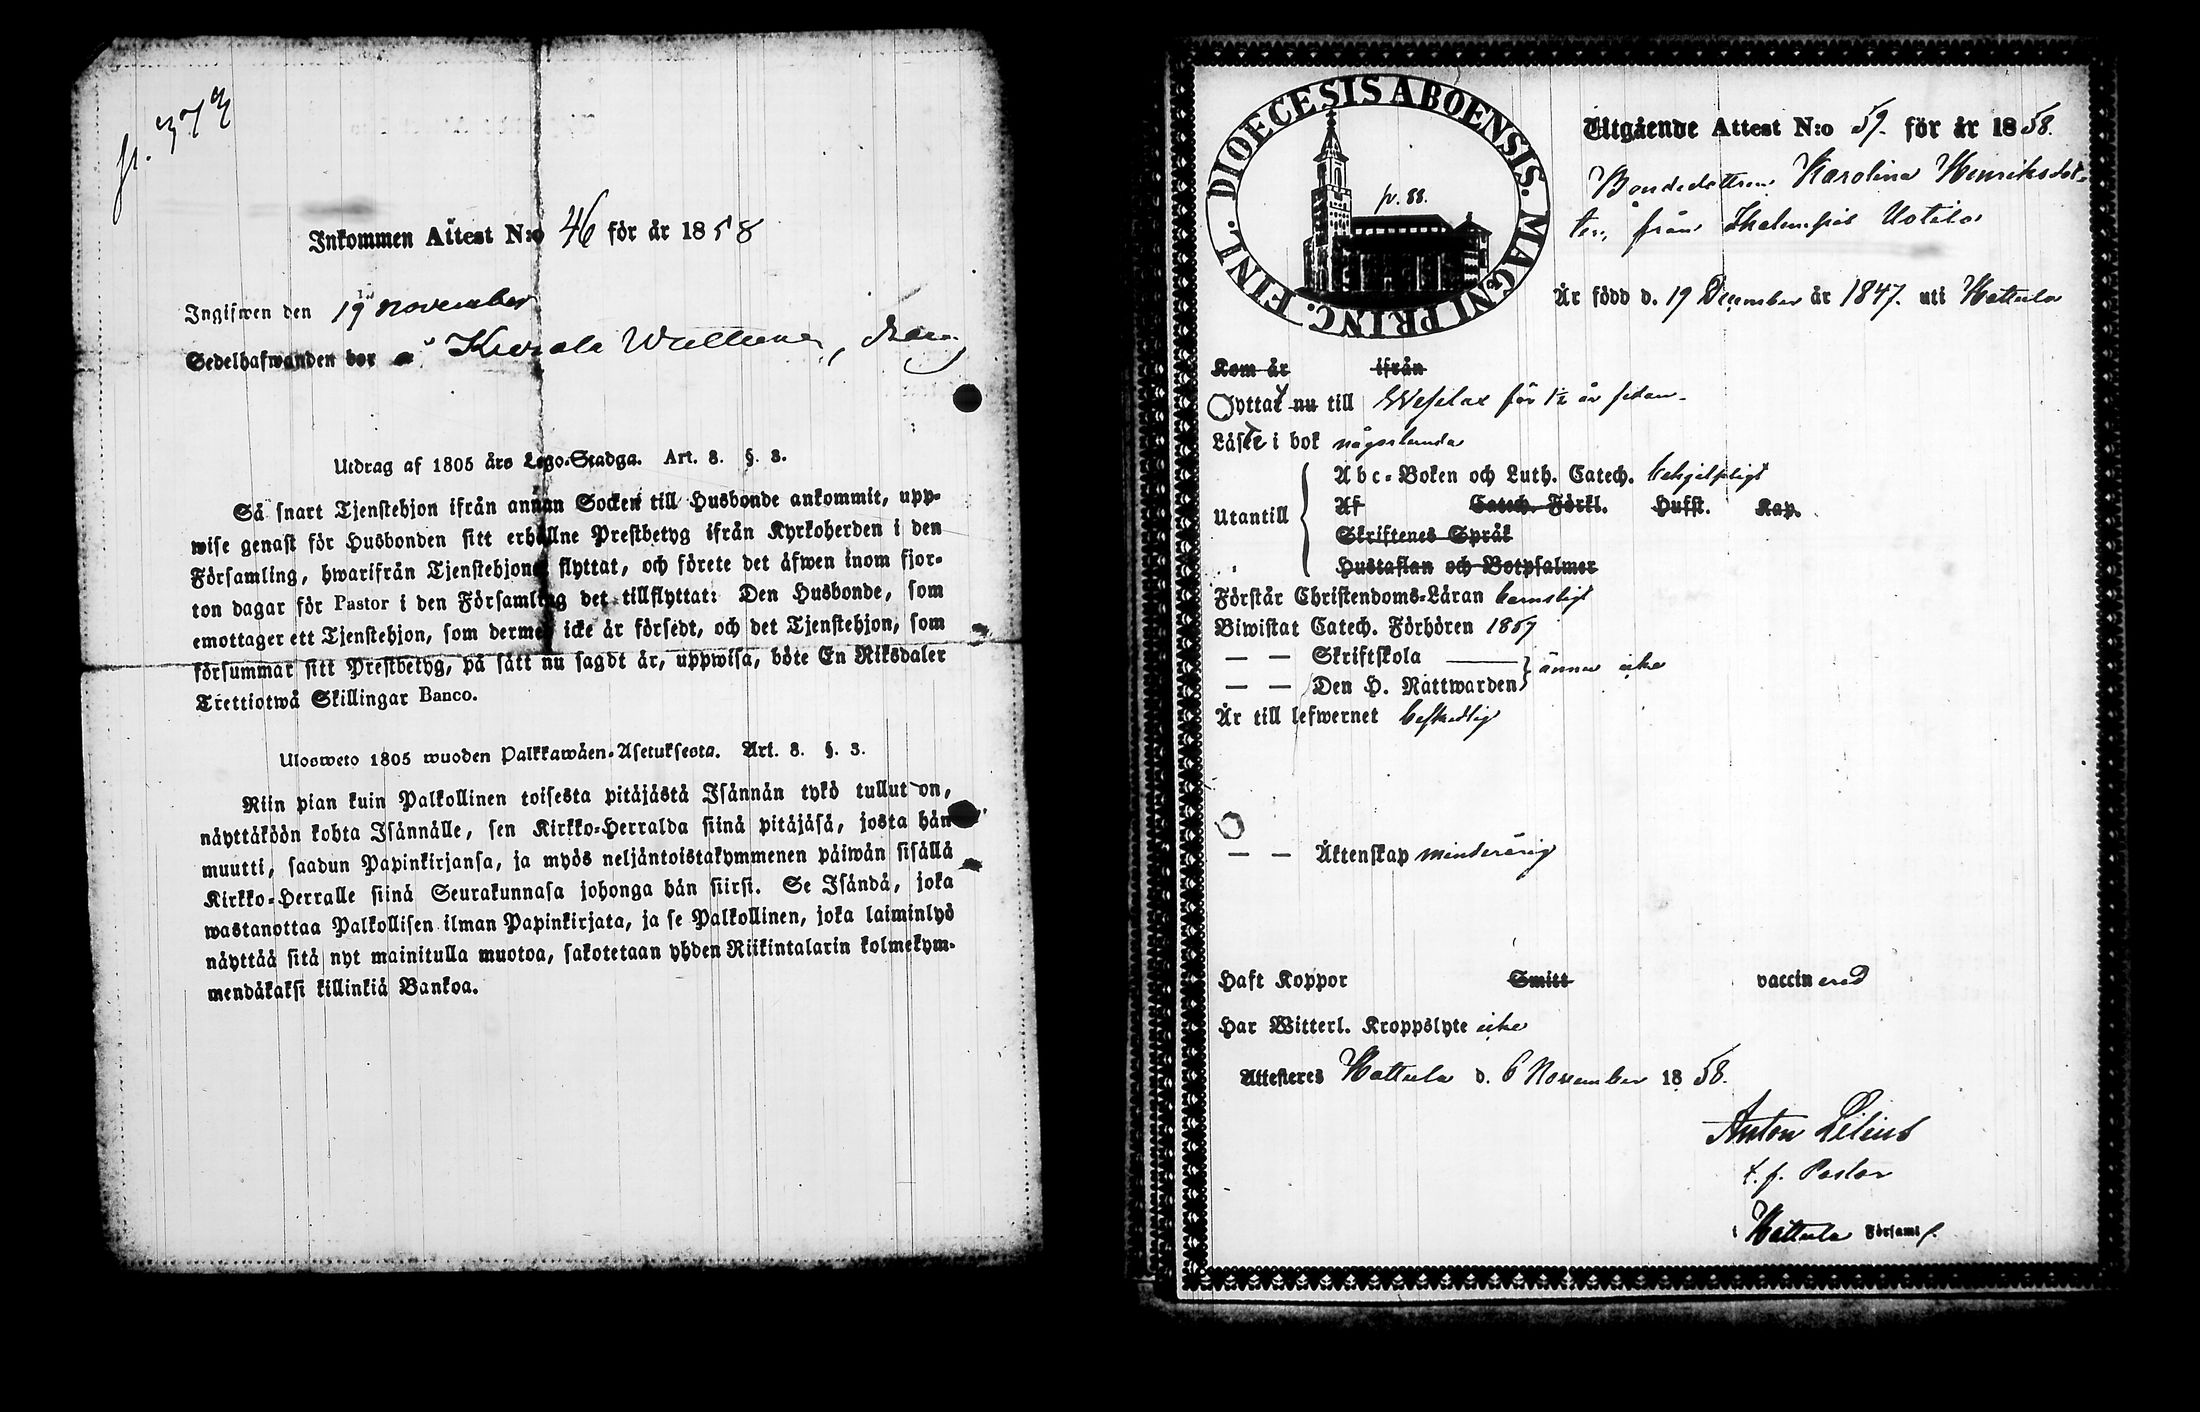 p. 373
Inkommen Attest N:o 46 för år 1858
Ingifwen den 19 november
Sedelhafwanden bor å
Utdrag af 1805 års Lego-Stadga. Art. 8. §. 3.
Så snart Tjenstehjon ifrån annan Socken till Husbonde ankommit, upp-
wise genast för Husbonden sitt erhållne Prestbetyg ifrån Kyrkoherden i den
Församling, hwarifrån Tjenstehjonet flyttat, och förete det äfwen inom fjor-
ton dagar för Pastor i den Församling det tillflyttat: Den Husbonde, som
emottager ett Tjenstehjon, som dermed icke är försedt, och det Tjenstehjon, som
försummar sitt Prestbetyg, på sätt nu sagdt är, uppwisa, böte En Riksdaler
Trettiotwå Skillingar Banco.
Ulosweto 1805 wuoden Palkkawäen-Asetuksesta. Art. 8. §. 3.
Niin pian kuin Palkollinen toisesta pitäjästä Isännän tykö tullut on,
näyttäköön kohta Isännälle, sen Kirkko-Herralda siinä pitäjäsä, josta hän
muutti, saadun Papinkirjansa, ja myös neljäntoistakymmenen päiwän sisällä
Kirkko-Herralle siinä Seurakunnasa johonga hän siirsi. Se Isändä, joka
wastanottaa Palkollisen ilman Papinkirjata, ja se Palkollinen, joka laiminlyö
näyttää sitä nyt mainitulla muotoa, sakotetaan yhden Riikintalarin kolmekym-
mendäkaksi killinkiä Bankoa.
DIOECESIS ABOENSIS. MAGNI PRINC. FINL.
p. 88.
Utgående Attest N:o 59. för år 1858.
Bondedottren Karolina Henriksdot-
ter, från Uotila
Är född d. 19 December år 1847. uti Hattula
Kom år ifrån
flyttat nu till för 1½ år sedan.
Läste i bok någorlunda
Utantill
Abc-Boken och Luth. Catech. behjelpligt
Af Catech. Förkl. Hufst. Kap.
Skriftenes Språk
Hustaflan och Botpsalmer
Förstår Christendoms-Läran barnsligt
Biwistat Catech. Förhören 1857
— — Skriftskola
— — Den H. Nattwarden } ännu icke
Är till lefwernet beskedlig
— — Äktenskap minderårig
Haft Koppor Smitt vaccinerad
Har Witterl. Kroppslyte icke
Attesteres Hattula d. 6 November 1858.
Anton Lilius
t. f. Pastor
i Hattula Församl.